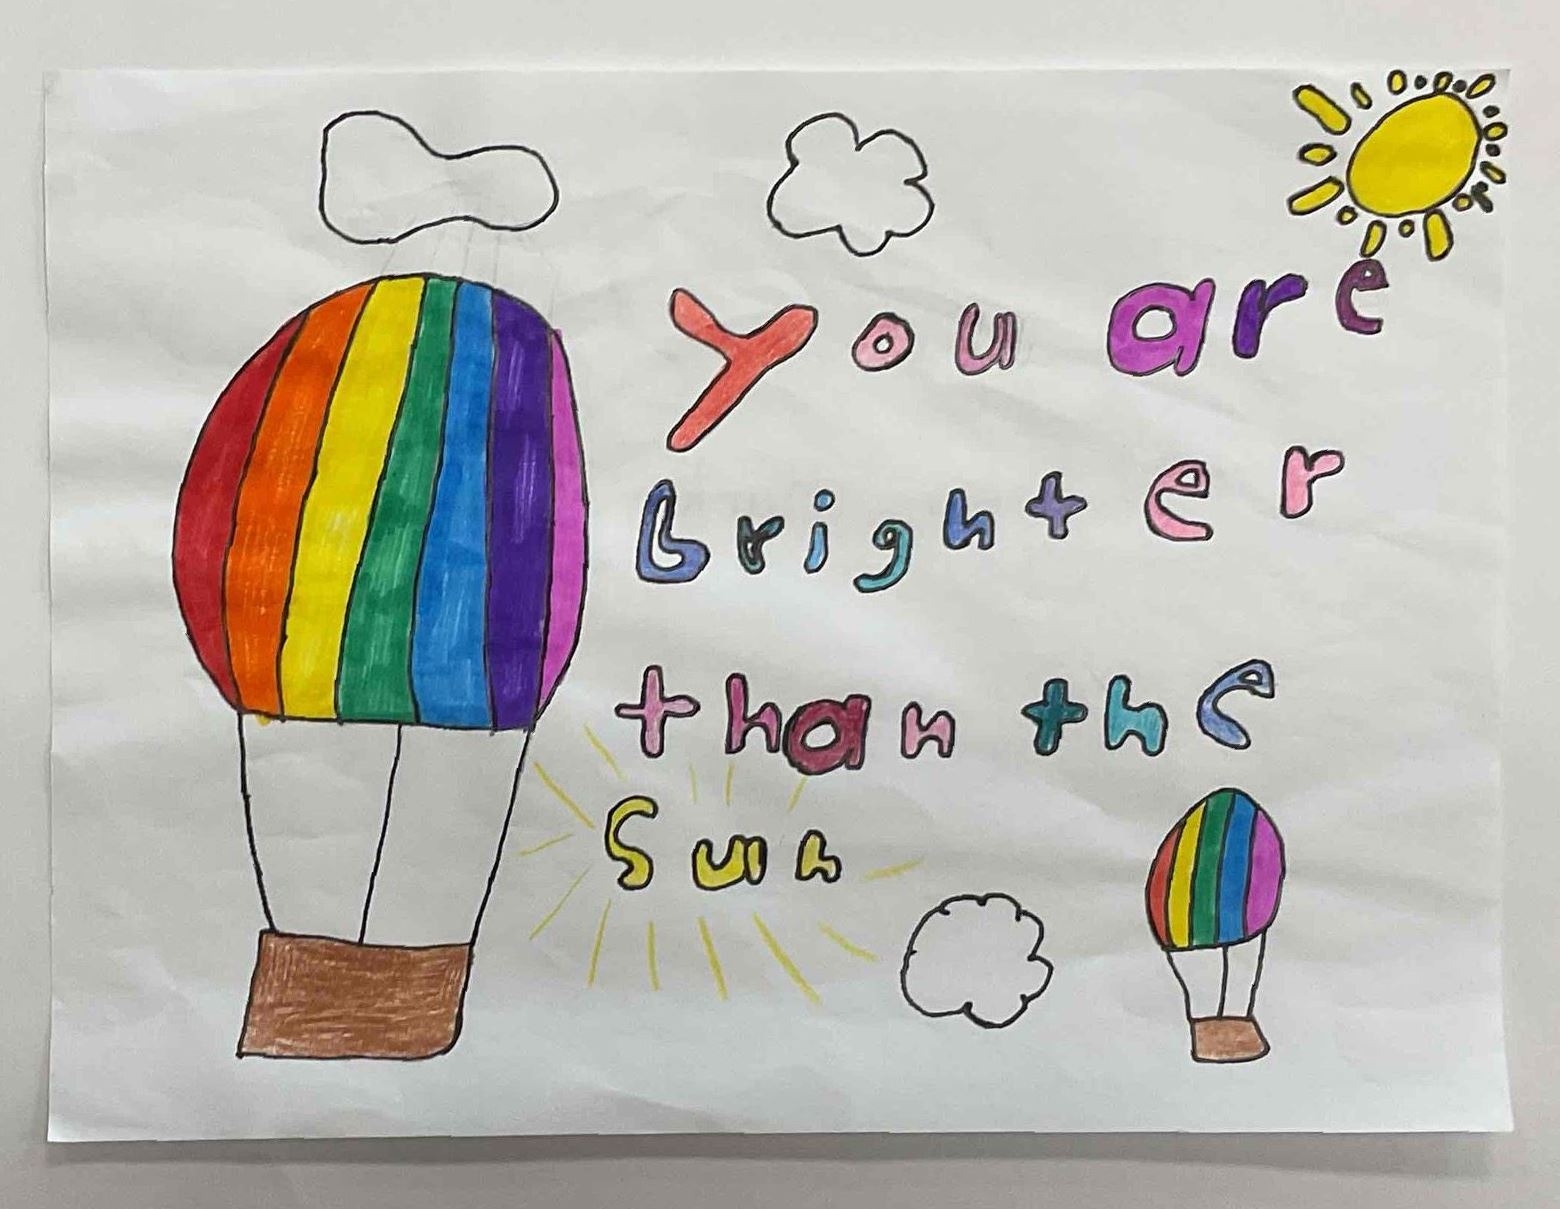 You are
brighter
than the
Sun